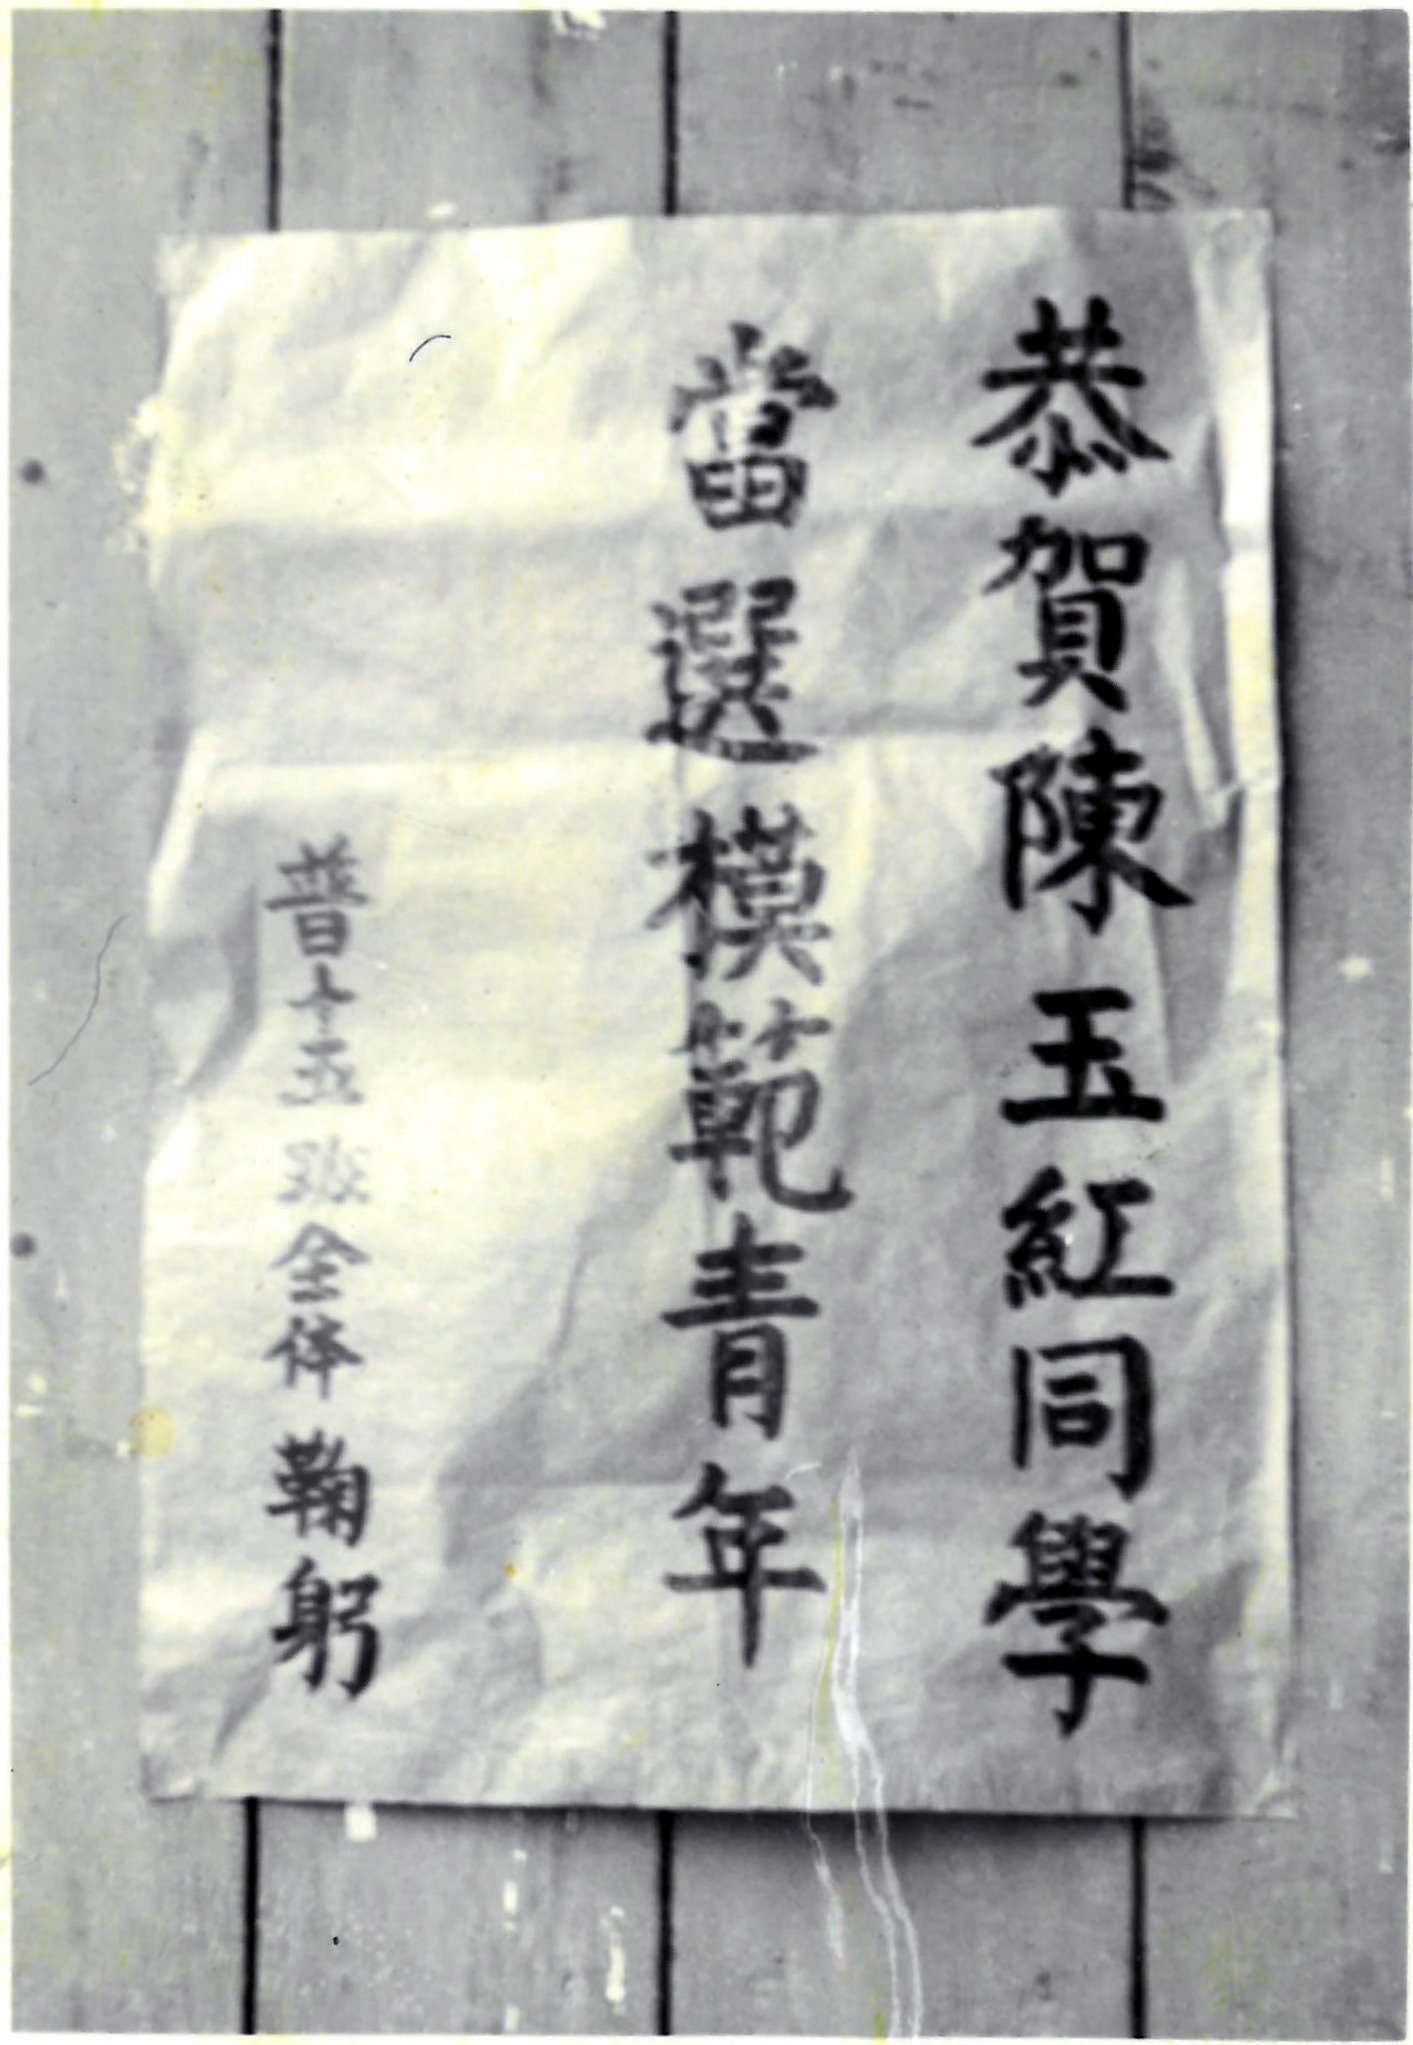 恭賀陳玉紅同學
當選模範青年
普十五班全体鞠躬